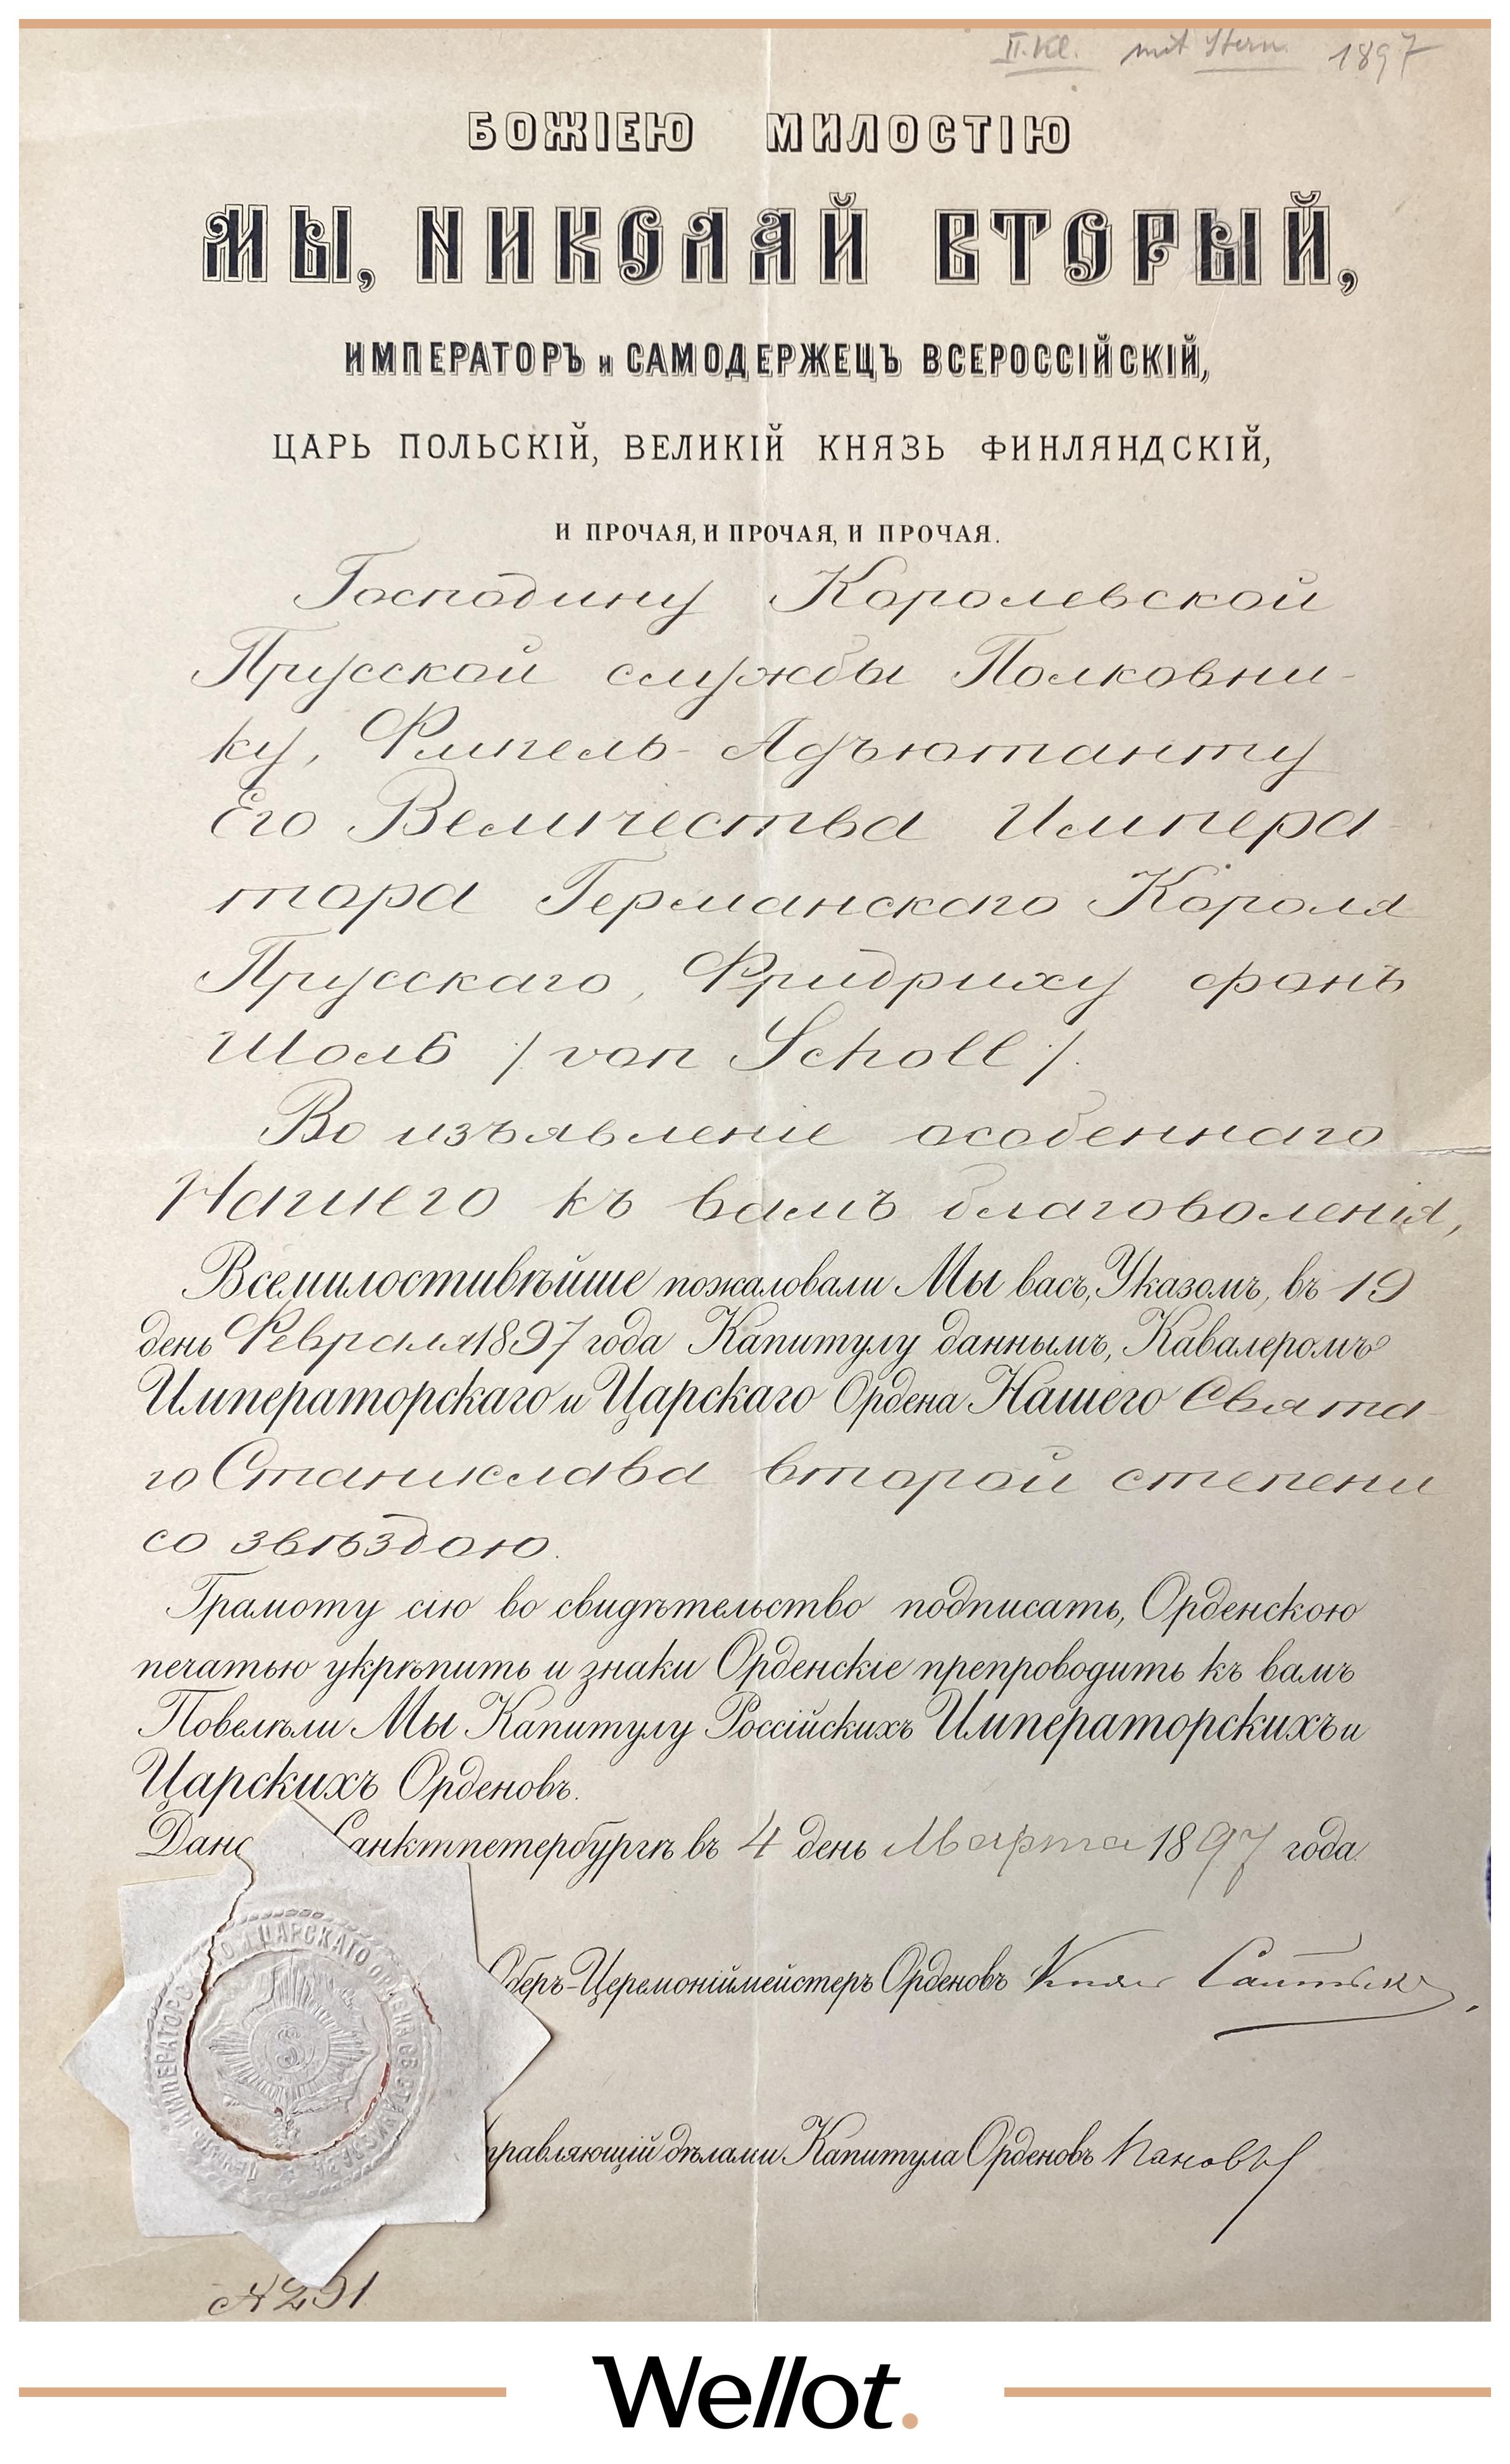 II. Kl. mit Stern. 1897
БОЖІЕЮ МИЛОСТІЮ
МЫ, НИКОЛАЙ ВТОРЫЙ,
ИМПЕРАТОРЪ и САМОДЕРЖЕЦЪ ВСЕРОССІЙСКІЙ,
ЦАРЬ ПОЛЬСКІЙ, ВЕЛИКІЙ КНЯЗЬ ФИНЛЯНДСКІЙ,
И ПРОЧАЯ, И ПРОЧАЯ, И ПРОЧАЯ.
Господину Королевской
Прусской службы Полковни-
ку, Флигель-Адъютанту
Его Величества Импера-
тора Германскаго Короля
Прусскаго, Фридриху фонъ
Шоль /von Scholl/.
Во изъявленіе особеннаго
Нашего къ вамъ благоволенія,
Всемилостивѣйше пожаловали Мы васъ, Указомъ, въ 19
день Февраля 1897 года Капитулу даннымъ, Кавалеромъ
Императорскаго и Царскаго Ордена Нашего Свята-
го Станислава второй степени
со звѣздою.
Грамоту сію во свидѣтельство подписать, Орденскою
печатью укрѣпить и знаки Орденскіе препроводить къ вамъ
Повелѣли Мы Капитулу Россійскихъ Императорскихъ и
Царскихъ Орденовъ.
Дано Санктпетербургѣ въ 4 день Марта 1897 года.
Оберъ-Церемоніймейстеръ Орденовъ Князь
ИМПЕРАТОРС И ЦАРСКАГО ОРДЕНА СВ. СТАНИСЛАВА
S
правляющій дѣлами Капитула Орденовъ Пановъ
№ 291
Wellot.